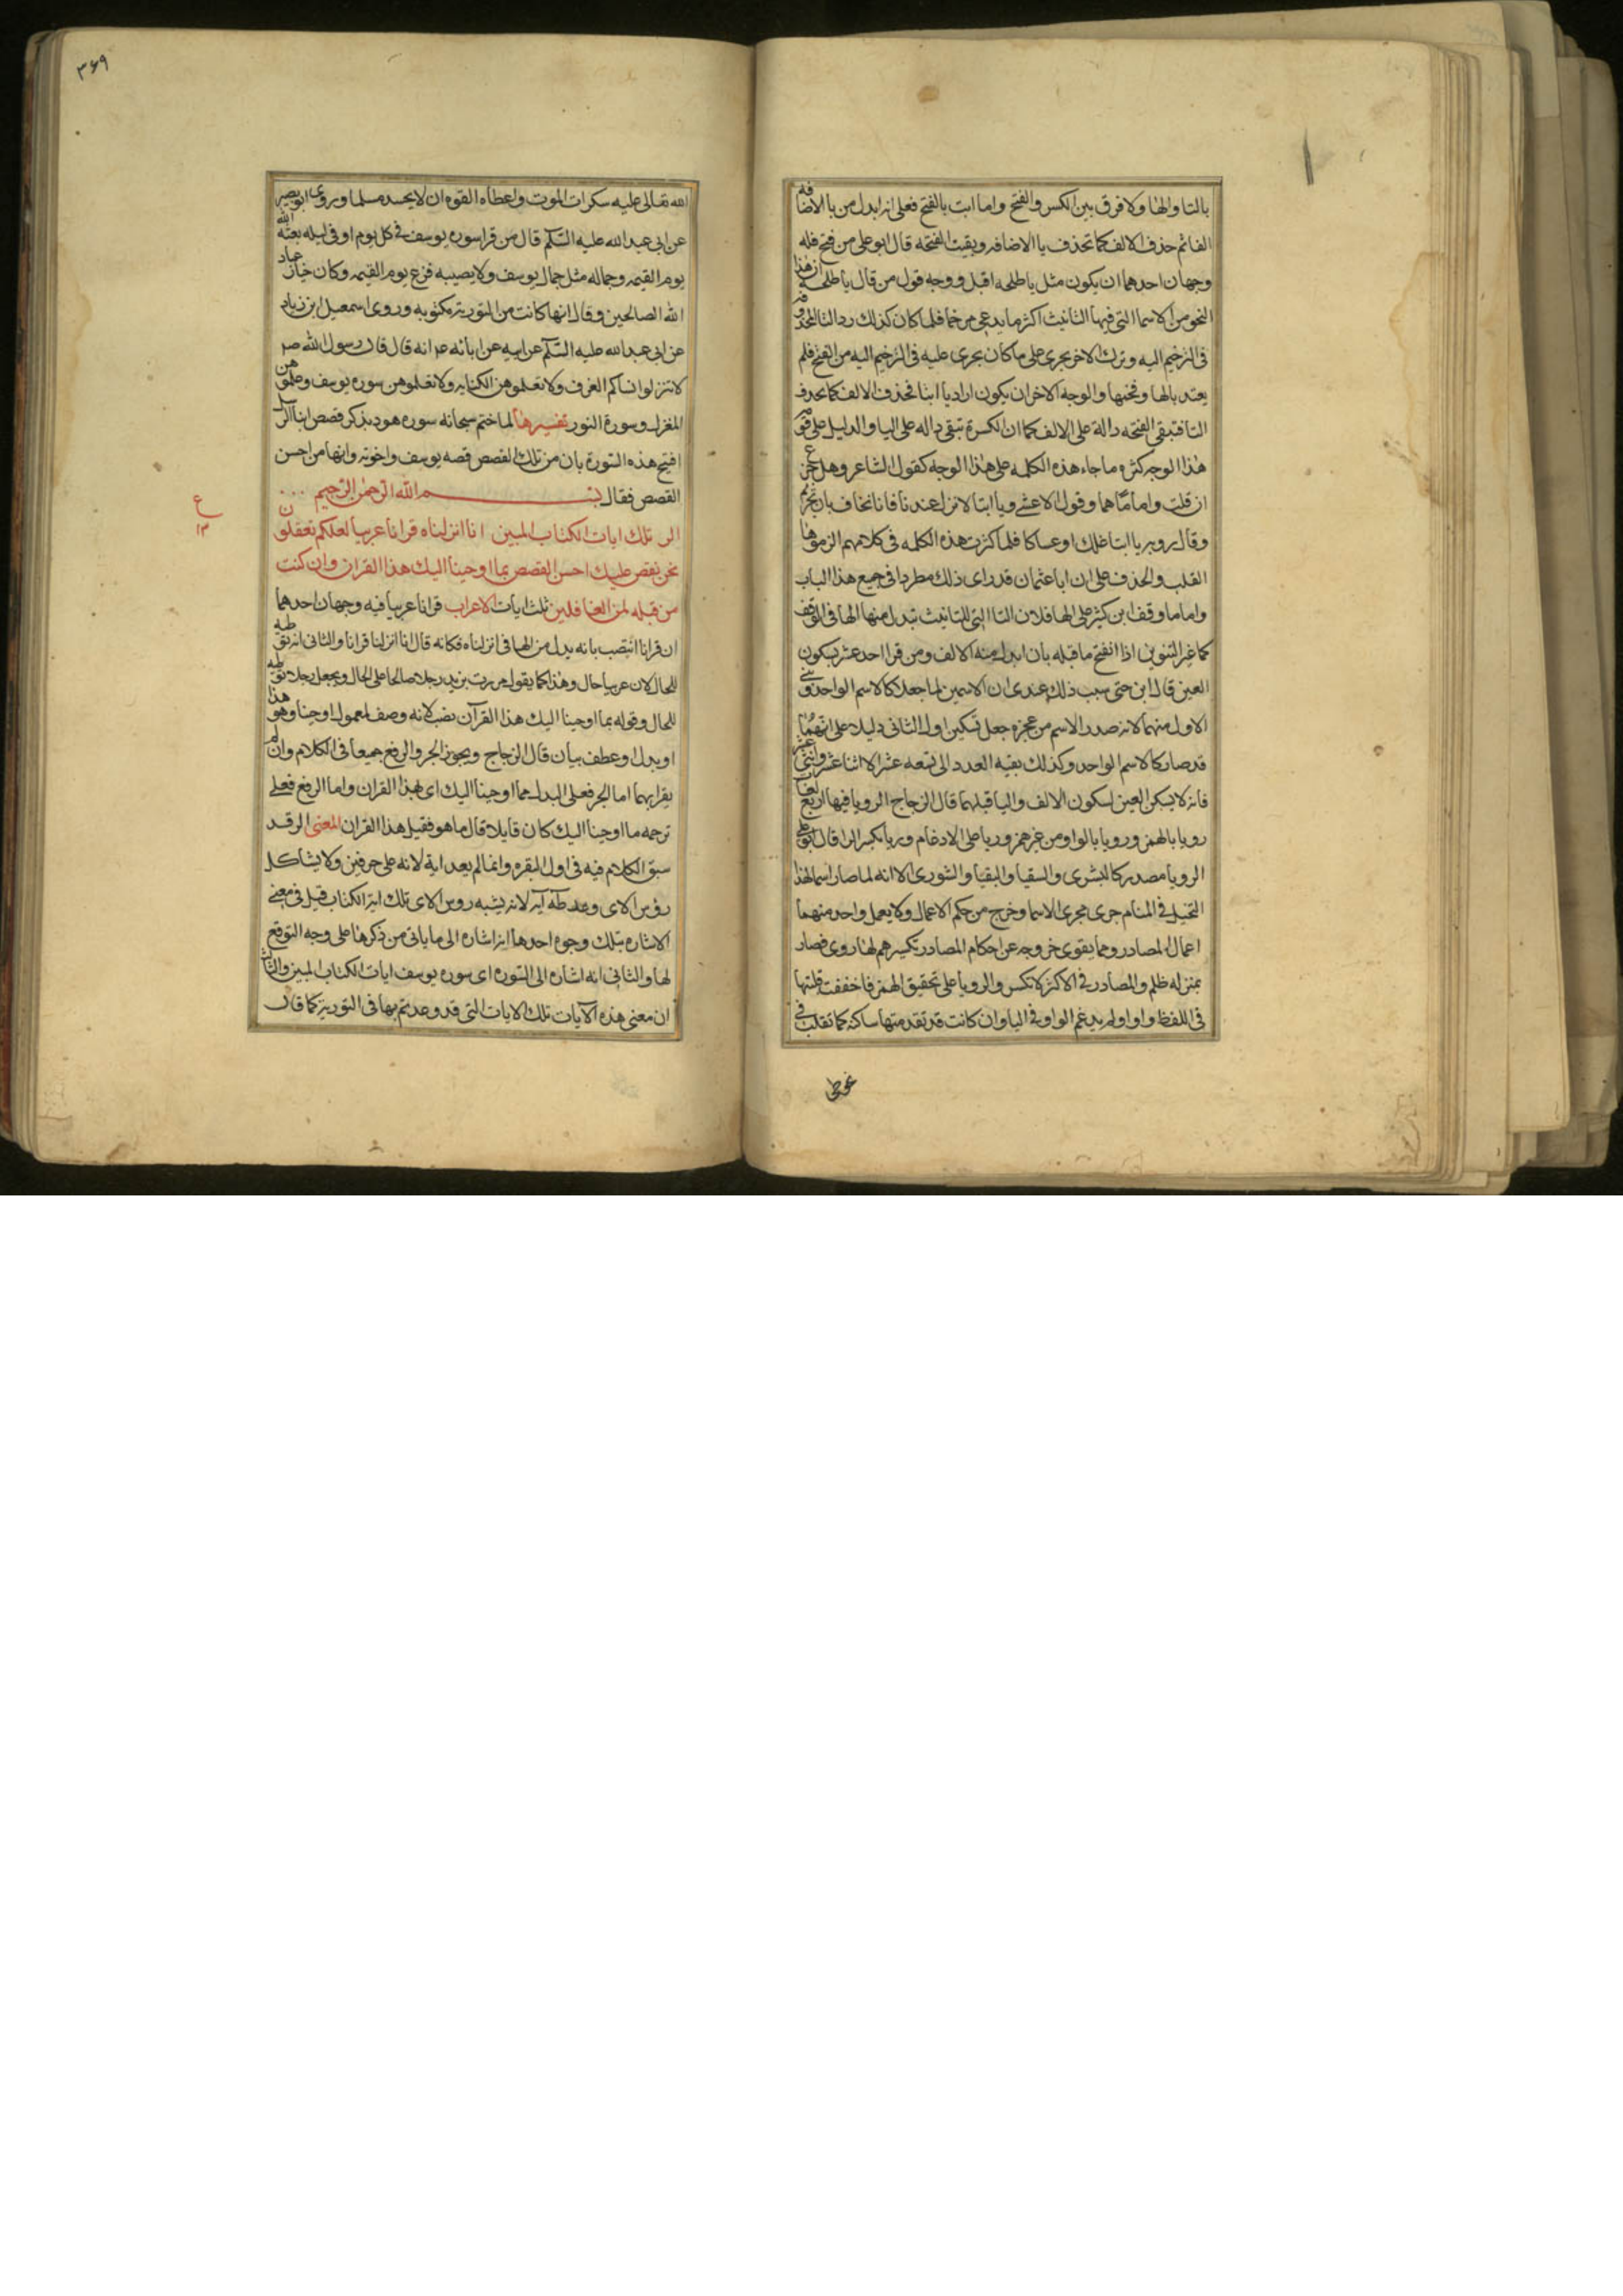 بالتا والها ولا فرق بين الكسر والفتح واما ابت بالفتح فعلى انه ابدل من يا الاضافه
الفا ثم حذف الالف كما تحذف يا الاضافه وبقيت الفتحه قال ابو على من فتح فله
وجهان احدهما ان يكون مثل يا طلحه اقبل ووجه قول من قال يا طلحه ان هذا
النحو من الاسما التى فيها التانيث اكثر ما يدعى مرخما فلما كان كذلك رد التا المحذوفه
فى الترخيم اليه وترك الاخر يجرى على ما كان يجرى عليه فى الترخيم اليه من الفتح فلم
يعتد بالها وفتحها والوجه الاخر ان يكون اراد يا ابتا فحذف الالف كما يحذف
التا فتبقى الفتحه دالة على الالف كما ان الكسرة تبقى داله على اليا والدليل على قوة
هذا الوجه كثره ما جاء هذه الكلمه على هذا الوجه كقول الشاعر وهل جزع
ان قلت واماماهما وقول الاعشى ويا ابتا لا تزل عندنا فانا نخاف بان نخترم
وقال روبه يا ابتا علك او عساكا فلما كثرت هذه الكلمه فى كلامهم الزموها
القلب والحذف على ان ابا عثمان قد راى ذلك مطردا فى جميع هذا الباب
واما ما وقف ابن كثير على الها فلان التا التى للتانيث تبدل منها الها فى الوقف
كما غير التنوين اذا انفتح ما قبله بان ابدل منه الالف ومن قرا احد عشر بسكون
العين قال ابن جنى سبب ذلك عندى ان الاسمين لما جعلا كالاسم الواحد وبنى
الاول منهما لانه صدر الاسم من عجزه جعل تسكين اول الثانى دليلا على انهما
قد صارا كالاسم الواحد وكذلك بقيه العدد الى تسعه عشر الا اثنا عشر واثنى عشر
فانه لا يسكن العين لسكون الالف واليا قبلهما قال الزجاج الرويا فيها اربع لغات
رويا بالهمز ورويا بالواو من غير همز وريا على الادغام وريا بكسر الرا قال ابو على
الرويا مصدر كالبشرى والسقيا والبقيا والشورى الا انه لما صار اسما لهذا
التخيل فى المنام جرى مجرى الاسما وخرج من حكم الاعمال ولا يعمل واحد منهما
اعمال المصادر ومما يقوى خروجه عن احكام المصادر تكسيرهم لها روى فصار
بمنزله ظلم والمصادر فى الاكثر لا تكسر والرويا على تحقيق الهمز فاخففت قلبتها
فى اللفظ واوا ولم يدغم الواو فى اليا وان كانت قد تقدمتها ساكنه كما تقلب فى
۳۶۹
الله تعالى عليه سكرات الموت واعطاه القوه ان لا يحسد مسلما وروى ابو بصير
عن ابى عبد الله عليه السلم قال من قرا سوره يوسف فى كل يوم او فى ليله بعثه الله
يوم القيمه وجماله مثل جمال يوسف ولا يصيبه فزع يوم القيمه وكان خيار عباد
الله الصالحين وقال انها كانت من التوريه مكتوبه وروى اسمعيل ابن زياد
عن ابى عبد الله عليه السلم عن ابيه عن ابائه ع انه قال قال رسول الله ص
لا تنزلوا نساكم الغرف ولا تعلموهن الكتابه ولا تعلموهن سوره يوسف وعلموهن
المغزل وسورة النور تفسيرها لما ختم سبحانه سوره هود بذكر قصص انبا الرسل
افتتح هذه السورة بان من تلك القصص قصه يوسف واخوته وانها من احسن
القصص فقال بسم الله الرحمن الرحيم
الر تلك ايات الكتاب المبين انا انزلناه قرانا عربيا لعلكم تعقلون
نحن نقص عليك احسن القصص بما اوحينا اليك هذا القران وان كنت
من قبله لمن الغافلين ثلث ايات الاعراب قرانا عربيا فيه وجهان احدهما
ان قرانا انتصب بانه بدل من الها فى انزلناه فكانه قال انا انزلنا قرانا والثانى انه توطيه
للحال لان عربيا حال وهذا كما يقول مررت بزيد رجلا صالحا على الحال ويجعل رجلا توطيه
للحال وقوله بما اوحينا اليك هذا القرآن نصب لانه وصف لمعمول اوحينا وهو هذا
او بدل او عطف بيان قال الزجاج ويجوز الجر والرفع جميعا فى الكلام وان لم
يقرا بهما اما الجر فعلى البدل مما اوحينا اليك اى بهذا القران واما الرفع فعلى
ترجمه ما اوحينا اليك كان قايلا قال ما هو فقيل هذا القران المعنى الر قد
سبق الكلام فيه فى اول البقره وانما لم يعد اية لانه على حرفين ولا يشاكل
رؤس الاى وعد طه آيه لانه يشبه روس الاى تلك ايه الكتاب قيل فى معنى
الاشاره بتلك وجوه احدها انه اشاره الى ما ياتى من ذكرها على وجه التوقع
لها والثانى انه اشاره الى السوره اى سوره يوسف ايات الكتاب المبين والثالث
ان معنى هذه الآيات تلك الايات التى قد وعدتم بها فى التوريه كما قال
ع
۱۳